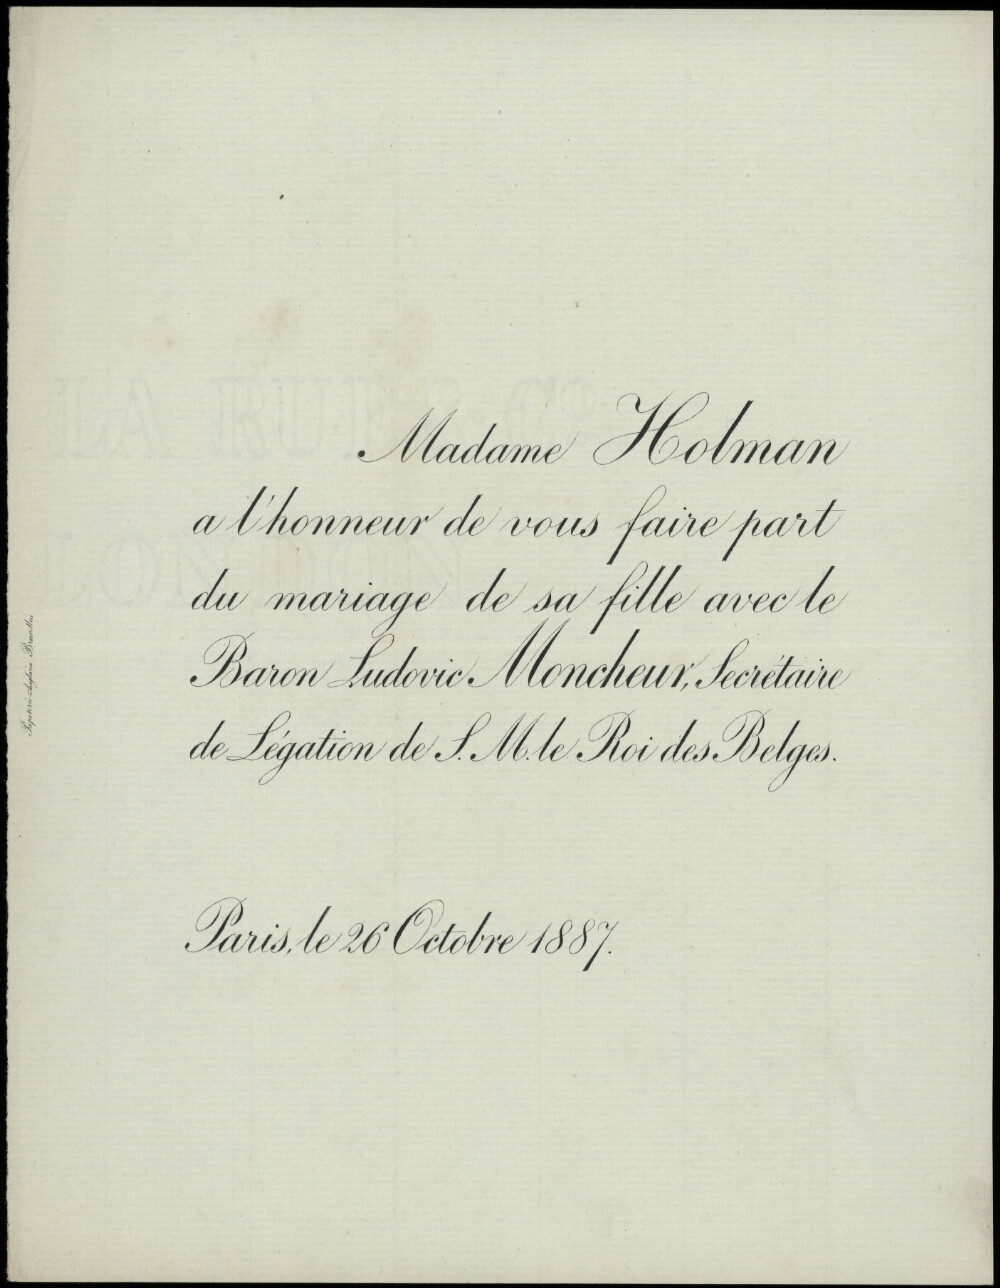 Madame Holman
a l'honneur de vous faire part
du mariage de sa fille avec le
Baron Ludovic Moncheur, Secrétaire
de Légation de S. M. le Roi des Belges.
Paris, le 26 Octobre 1887.
Papeterie Anglaise Bruxelles
LA RUE & Co
LONDON